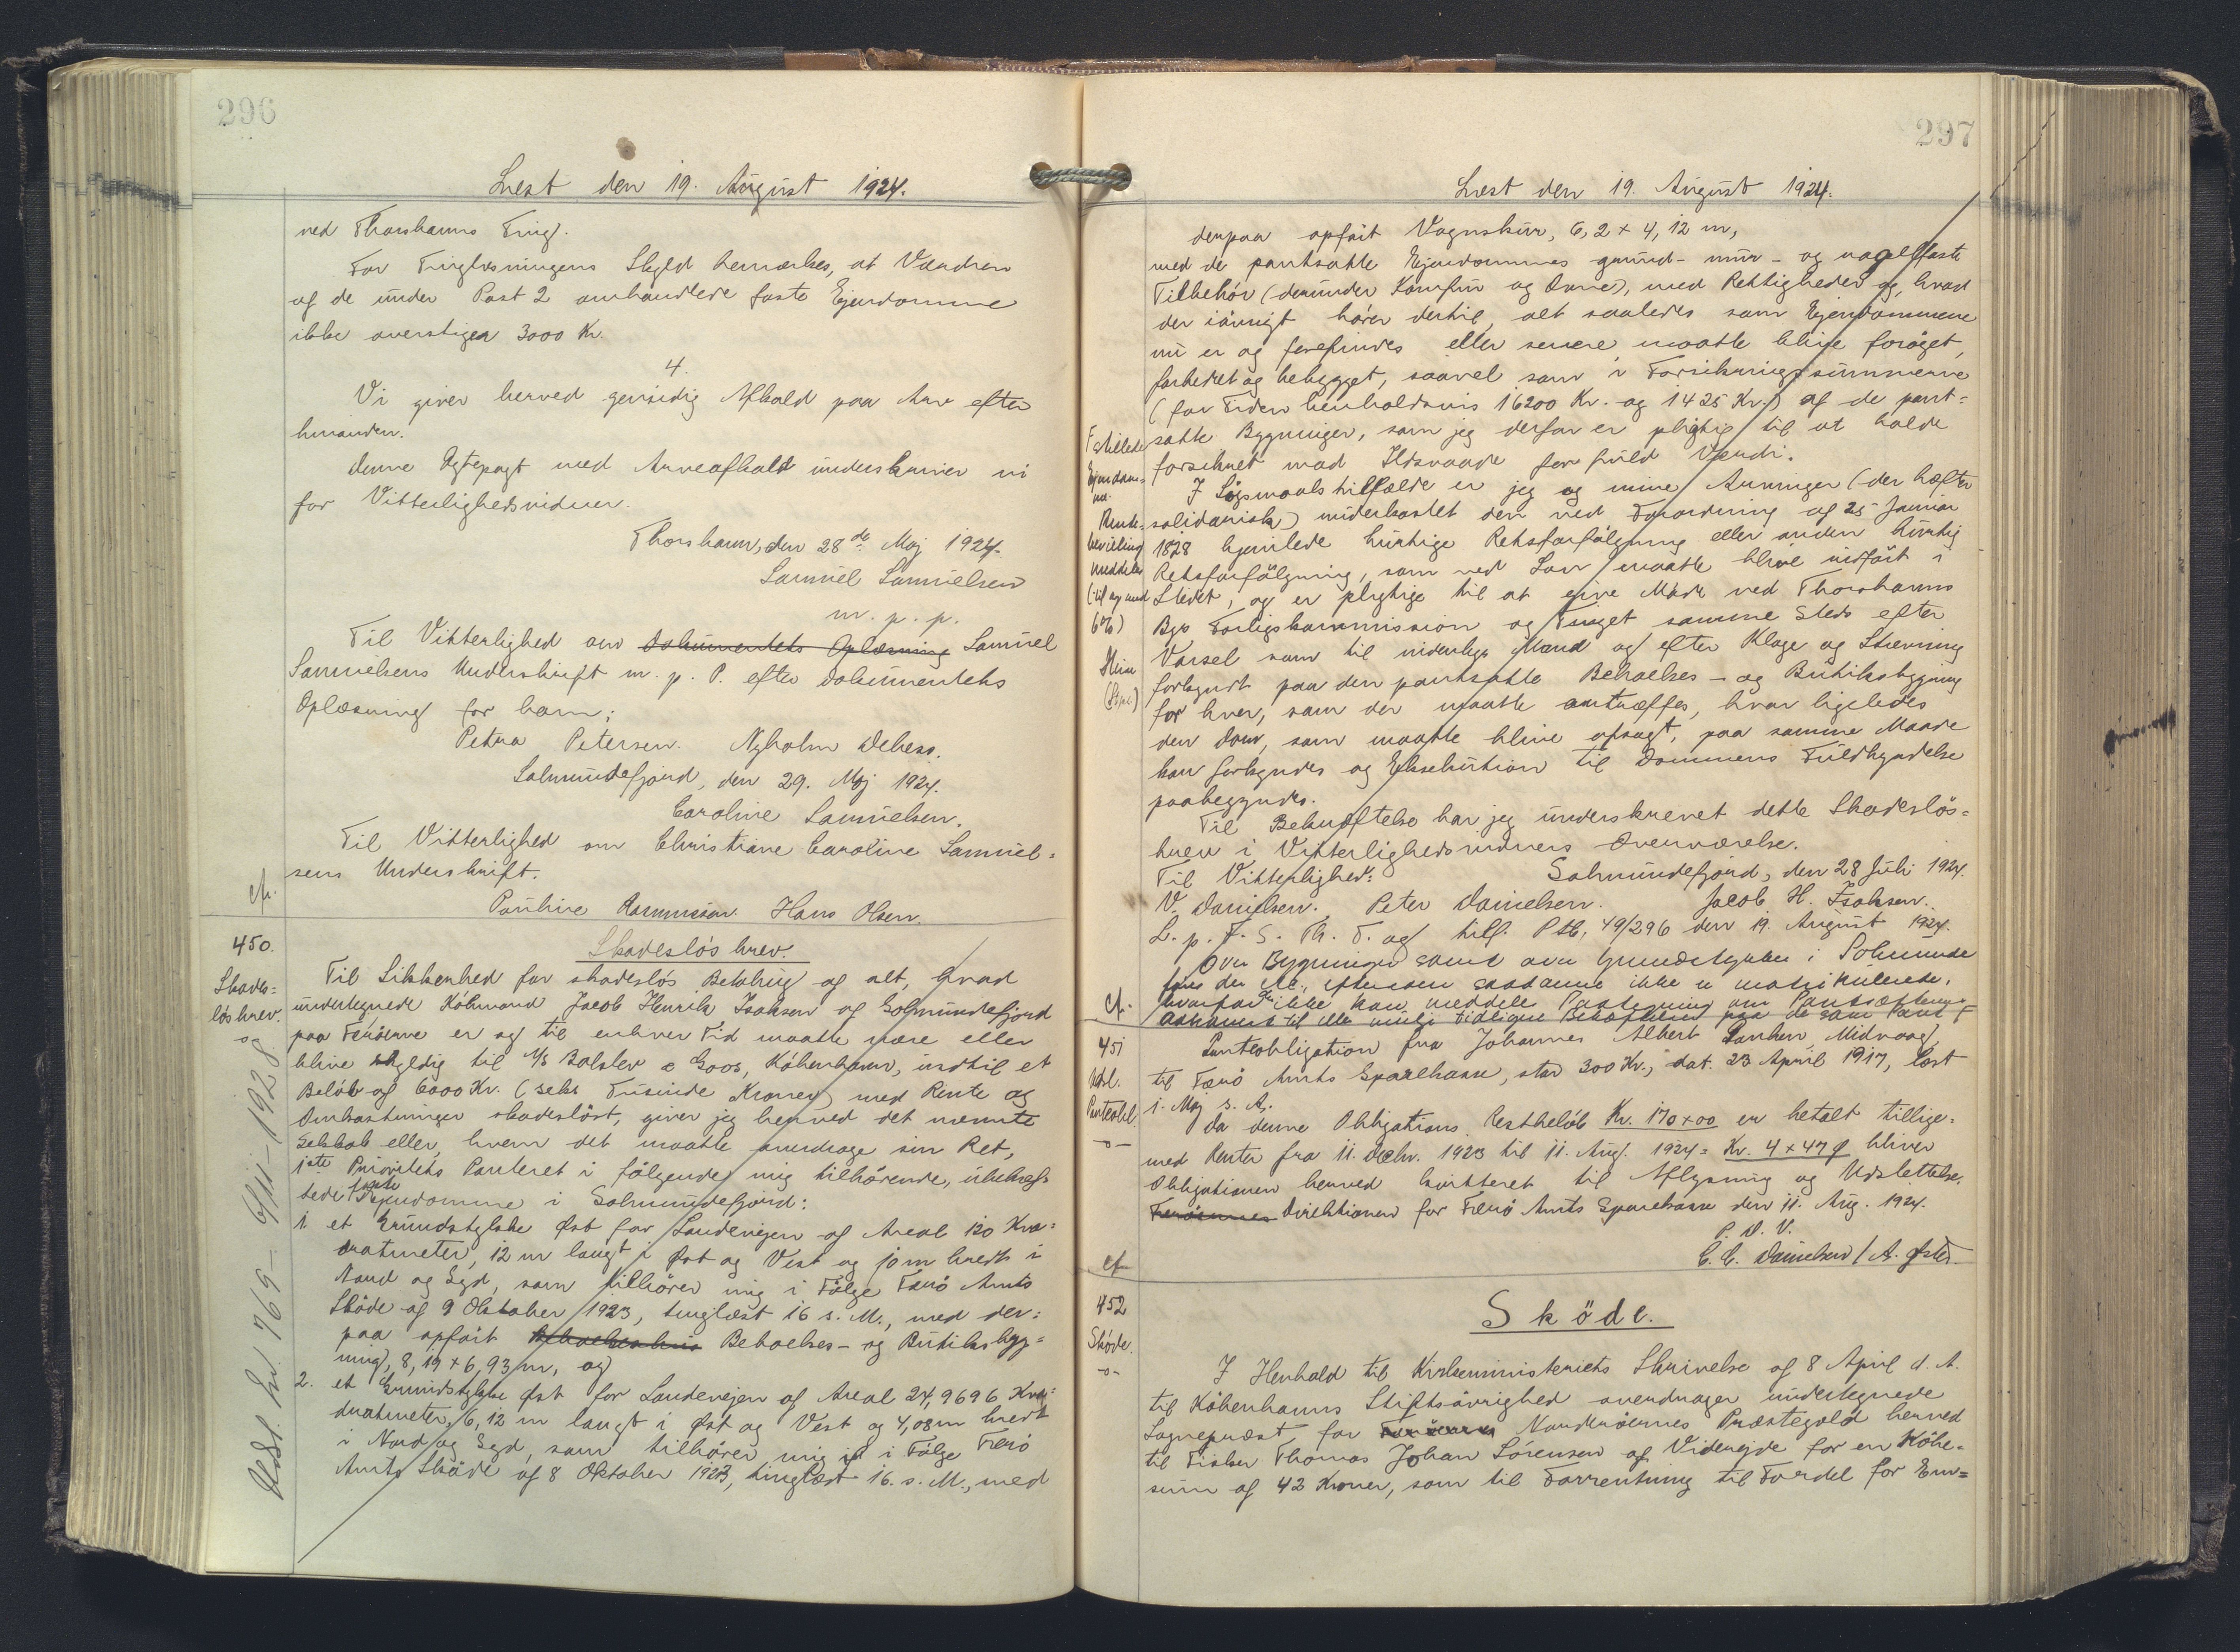 296
Læst den 19. August 1924.
ved Thorshavns Ting.
For Tinglæsningens Skyld bemærkes, at Værdien
af de under Post 2 omhandlede faste Ejendomme
ikke overstiger 3000 Kr.
4.
Vi giver herved gensidig Afkald paa Arv efter
hinanden.
Denne Ægtepagt med Arveafkald underskriver vi
for Vitterlighedsvidner.
Thorshavn, den 28de Maj 1924.
Samuel Samuelsen
m. p. p.
Til Vitterlighed om Dokumentets Oplæsning Samuel
Samuelsens Underskrift m. p. P. efter Dokumentets
Oplæsning for ham:
Petra Petersen. Nyholm Debess.
Solmundefjord, den 29. Maj 1924.
Caroline Samuelsen.
Til Vitterlighed om Christiane Caroline Samuel=
sens Underskrift.
cf.
Pauline Rasmussen. Hans Olsen.
450.
Skades=
løsbrev.
Skadesløsbrev.
Til Sikkerhed for skadesløs Betaling af alt, hvad
undertegnede Købmand Jacob Henrik Isaksen af Solmundefjord
paa Færøerne er og til enhver Tid maatte være eller
blive skyldig til A/S Balslev & Goos, København, indtil et
Beløb af 6000 Kr. (seks Tusinde Kroner) med Rente og
Omkostninger skadesløst, giver jeg herved det nævnte
Selskab eller, hvem det maatte overdrage sin Ret,
1ste Prioritets Panteret i følgende mig tilhørende, ubehæf=
tede faste Ejendomme i Solmundefjord:
1. et Grundstykke Øst for Landevejen af Areal 120 Kva=
dratmeter, 12 m langt i Øst og Vest og 10 m bredt i
Nord og Syd, som tilhører mig i Følge Færø Amts
Skøde af 9 Oktober 1923, tinglæst 16 s. M., med der=
paa opført Beboelseshus Beboelses- og Butiksbyg=
ning, 8,19 x 6,93 m, og
2. et Grundstykke Øst for Landevejen af Areal 24,9696 Kva=
dratmeter, 6,12 m langt i Øst og Vest og 4,08 m bredt
i Nord og Syd, som tilhører mig i Følge Færø
Amts Skøde af 8 Oktober 1923, tinglæst 16. s. M., med
297
Læst den 19. August 1924.
derpaa opført Vognskur, 6,2 x 4,12 m,
med de pantsatte Ejendommes grund- mur- og nagelfaste
Tilbehør (derunder Komfur og Ovne), med Rettigheder og, hvad
der iøvrigt hører dertil, alt saaledes som Ejendommene
nu er og forefindes eller senere maatte blive forøget,
forbedret og bebygget, saavel som i Forsikringssummerne
(for Tiden henholdsvis 16200 Kr. og 1425 Kr.) af de pant=
satte Bygninger, som jeg derfor er pligtig til at holde
forsikret mod Ildsvaade for fuld Værdi.
I Søgsmaalstilfælde er jeg og mine Arvinger (der hæfter
solidarisk) underkastet den ved Forordning af 25 Januar
1828 hjemlede hurtige Retsforfølgning eller anden hurtig
Retsforfølgning, som ved Lov maatte blive indført i
Stedet, og er pligtige til at give Møde ved Thorshavns
Bys Forligskommission og Tinget samme Steds efter
Varsel som til indenbys Mænd og efter Klage og Stævning
forkyndt paa den pantsatte Beboelses- og Butiksbygning
for hver, som der maatte antræffes, hvor ligeledes
den Dom, som maatte blive afsagt, paa samme Maade
kan forkyndes og Eksekution til Dommens Fuldbyrdelse
paabegyndes.
Til Bekræftelse har jeg underskrevet dette Skadesløs=
brev i Vitterlighedsvidners Overværelse.
Til Vitterlighed: Solmundefjord, den 28 Juli 1924.
V. Danielsen. Peter Danielsen. Jacob H. Isaksen.
L. p. F. S. Th. T. og tilf. Ptb. 49/296 den 19. August 1924.
cf.
451
Udsl.
Panteobl.
Panteobligation fra Johannes Albert Midvaag
til Færø Amts Sparekasse, stor 300 Kr., dat. 23 April 1917, læst
1. Maj s. A.
Da denne Obligations Restbeløb Kr. 170 x 00 er betalt tillige=
med Renter fra 11. Decbr. 1923 til 11. Aug. 1924 = Kr. 4 x 47 Ø bliver
Obligationen herved kvitteret til Aflysning og Udslettelse.
Direktionen for Færø Amts Sparekasse den 11. Aug. 1924.
P. D. V.
C. C. Danielsen / A. Øster.
cf
452
Skøde.
Skøde.
I Henhold til Kirkeministeriets Skrivelse af 8 April d. A.
til Københavns Stiftsøvrighed overdrager undertegnede
Sognepræst for Norderøernes Præstegæld herved
til Fisker Thomas Johan Sørensen af Videreide for en Købe=
sum af 42 Kroner, som til Forrentning til Fordel for Em=